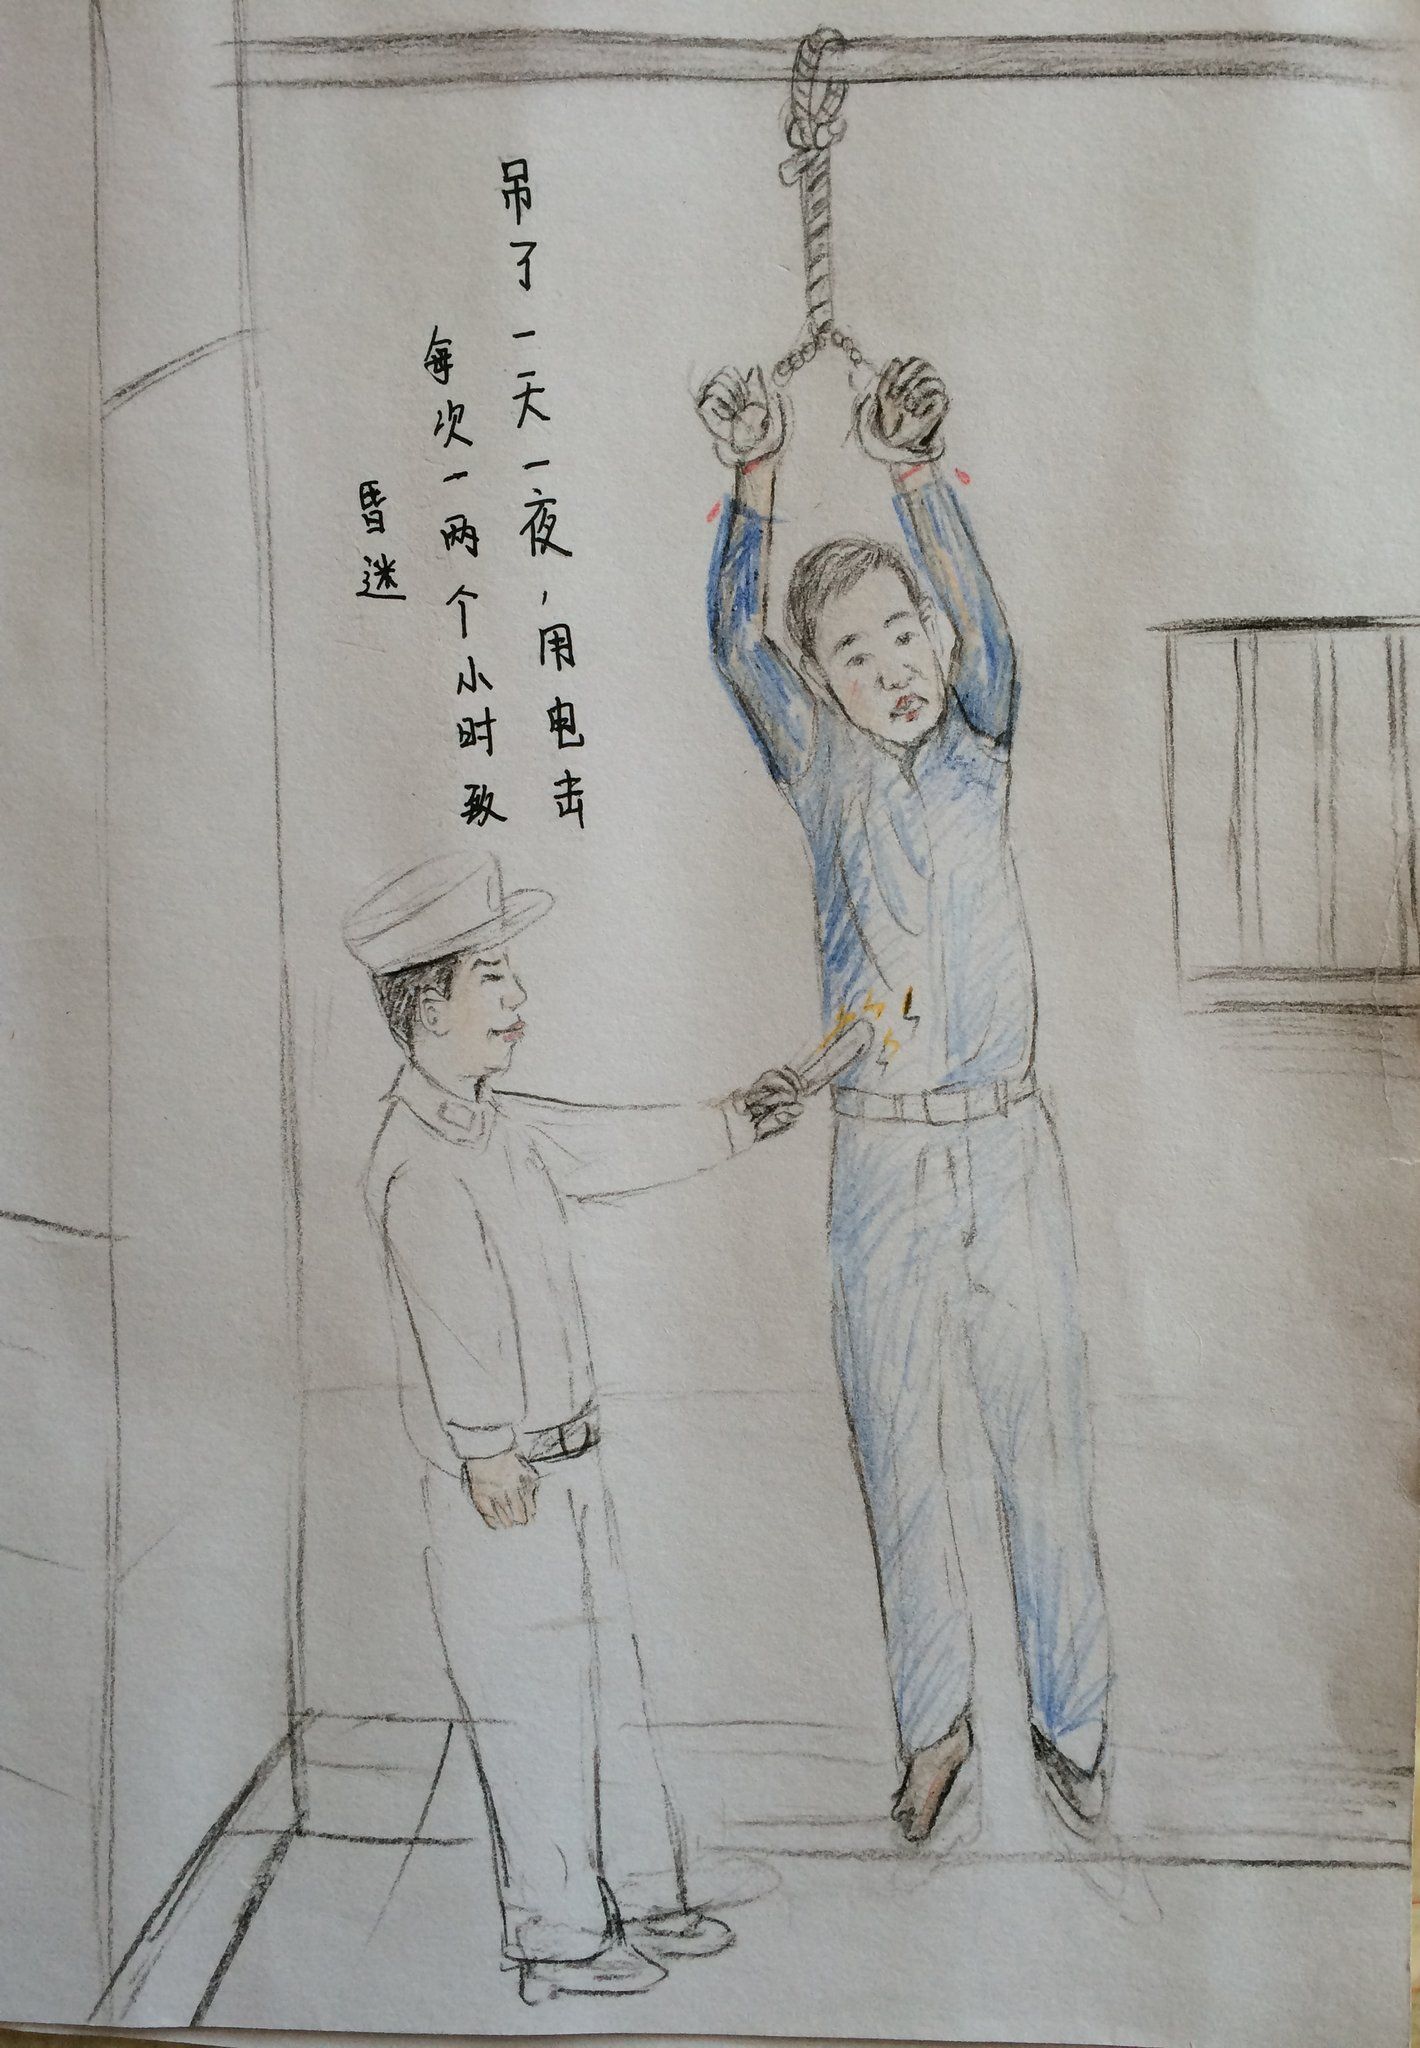 吊了一天一夜,用电击
每次一两个小时致
昏迷